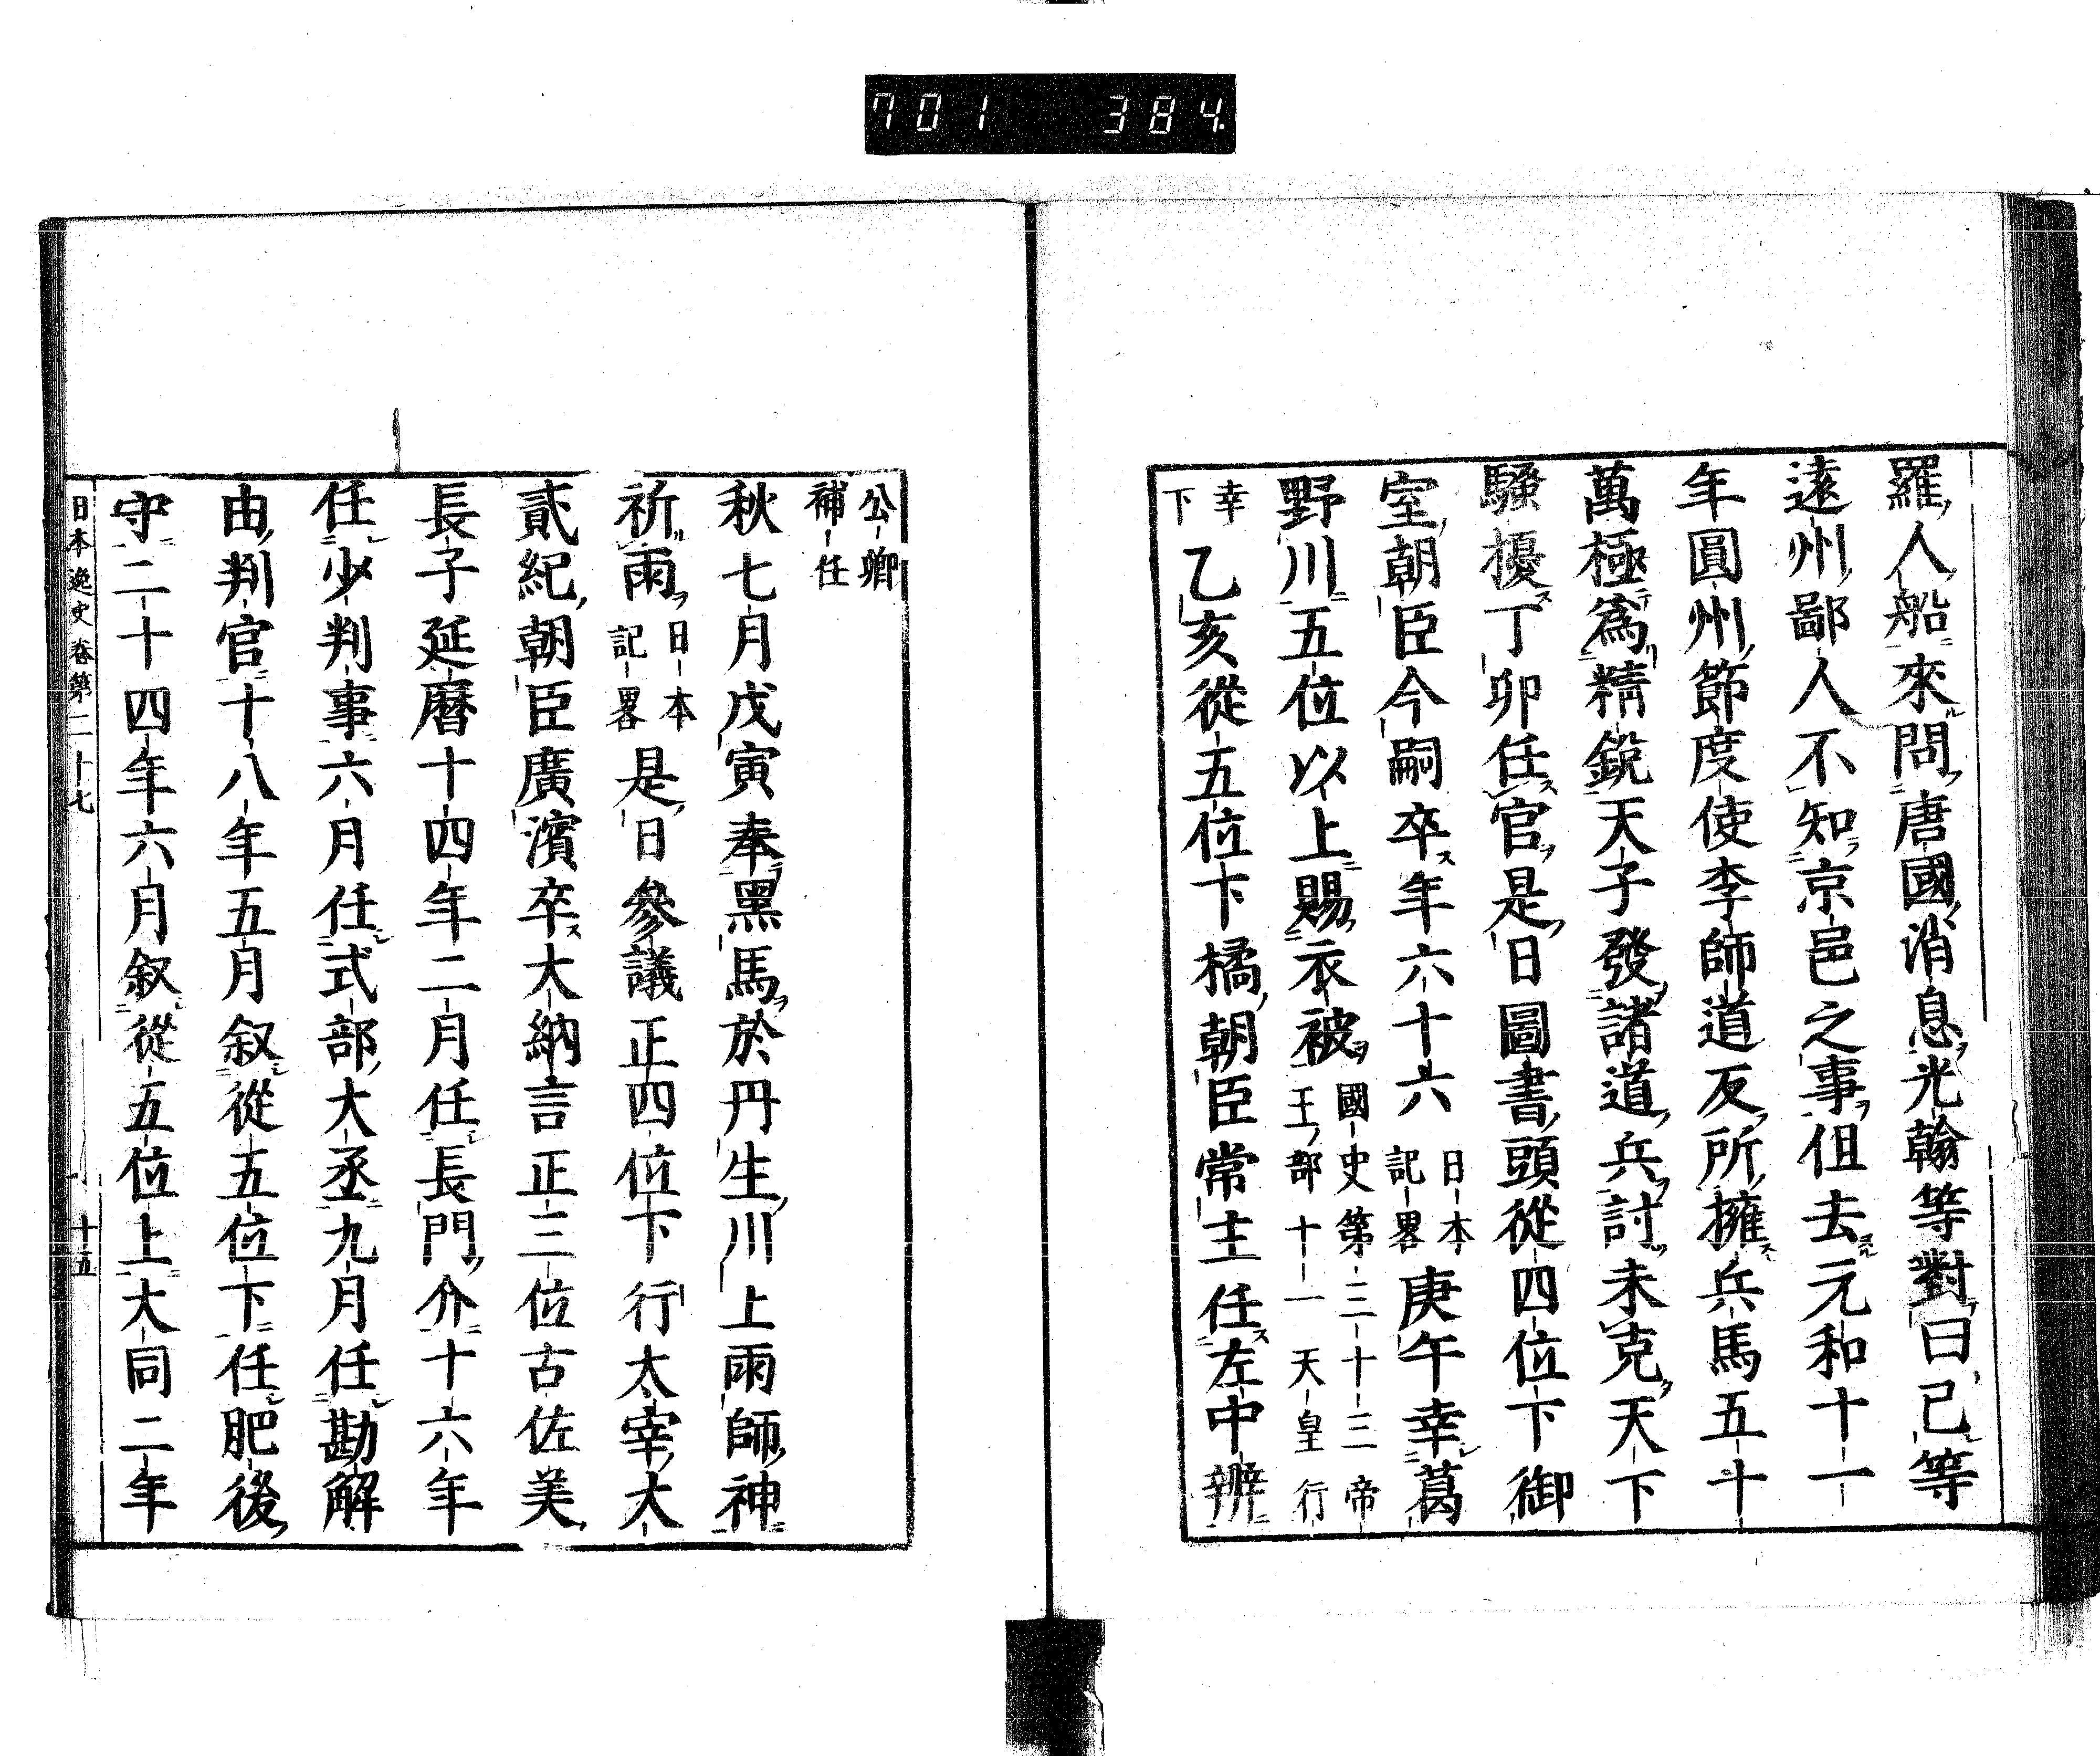 701 384
羅人船來問唐國消息光翰等對曰己等
遠州鄙人不知京邑之事但去元和十一
年圓州節度使李師道反所擁兵馬五十
萬極爲精鋭天子發諸道兵討未克天下
騷擾丁卯任官是日圖書頭從四位下御
室朝臣今嗣卒年六十六日本記畧庚午幸葛
野川五位以上賜衣被國史第三十三帝王部十一天皇行
幸下乙亥從五位下橘朝臣常主任左中辨
公卿補任
秋七月戊寅奉黑馬於丹生川上雨師神
祈雨日本記畧是日參議正四位下行太宰大
貳紀朝臣廣濱卒大納言正三位古佐美
長子延曆十四年二月任長門介十六年
任少判事六月任式部大丞九月任勘解
由判官十八年五月叙從五位下任肥後
守二十四年六月叙從五位上大同二年
日本逸史卷第二十七 十五